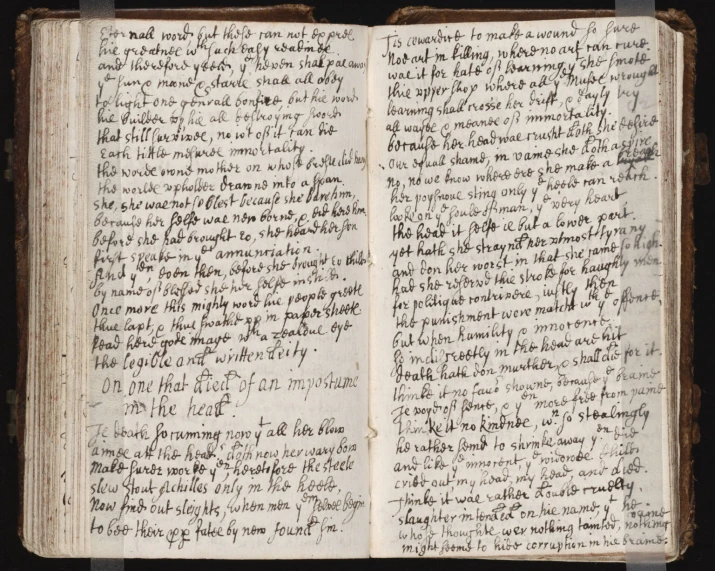 Eternall word, but these can not expresse
his greatnes wth such easy readines
and therefore yeeld, ye heven shal pas away
ye sun & moone starrs shall all obey
to light one generall bonfire, but his word
his builder up his all destroying sword
that still survives, no iot of it can die
Each tittle misures immortality.
the words owne mother on whose breste did hang
the worlds upholder drawne into a span
she, she was not so blest because she bare him,
because her selfe was new borne, & did heare him
before she had brought to, she heard her son
first speake in ye annunciation.
And yn even then, before she brought to childe
by name of blessed she her selfe instild.
Once more this mighty word his people greets
thus lapt, & thus swathd up in paper sheets
Read here gods image wth a zealous eye
the legible and written deity.
On one that died of an impostume
in the head.
Is death so cuning now yt all her blow
aimes att the head, doth now her wary bow
Make surer worke yn heretofore the steele
slew stout Achilles only in the heele.
Now find out sleights, when men yemselves begin
to bee their pp fates by new found sin.
Tis cowardice to make a wound so sure
Noe art in killing, where no art can cure.
was it for hate of learning yt she smote
this upper shop where all ye Muses wrought
learning shall crosse her drift, & dayly try
all wayes & meanes of immortality.
because her head was crusht doth she desire
our equall shame, in vaine she doth aspire
no, no we know where ere she make a breach
her poysnous sting only ye heele can reach
looke on ye soule of man, ye very heart
the head it selfe is but a lower part.
yet hath she straynd her utmost tyrany
and don her worst in that she came so high.
had she reservd this stroke for haughty men
for politique contrivers, iustly then
the punishment were matcht wth ye offence,
but when humility & innocence
So indiscreetly in the head are hit
death hath don murther, & shall die for it.
thinke it no favor showne, because ye braine
Is voyd of sence, & yn more free from paine
thinke it no kindnes, wn so stealingly
he rather semd to shrinke away yn die
and like ye innocent, ye widowes childe
cried out my head, my head, and died.
Thinke it was rather double cruelty.
slaughter intended on his name, yt he
whose thoughts wer nothing tainted, nothing vaine
might seeme to hide corruption in his braine.